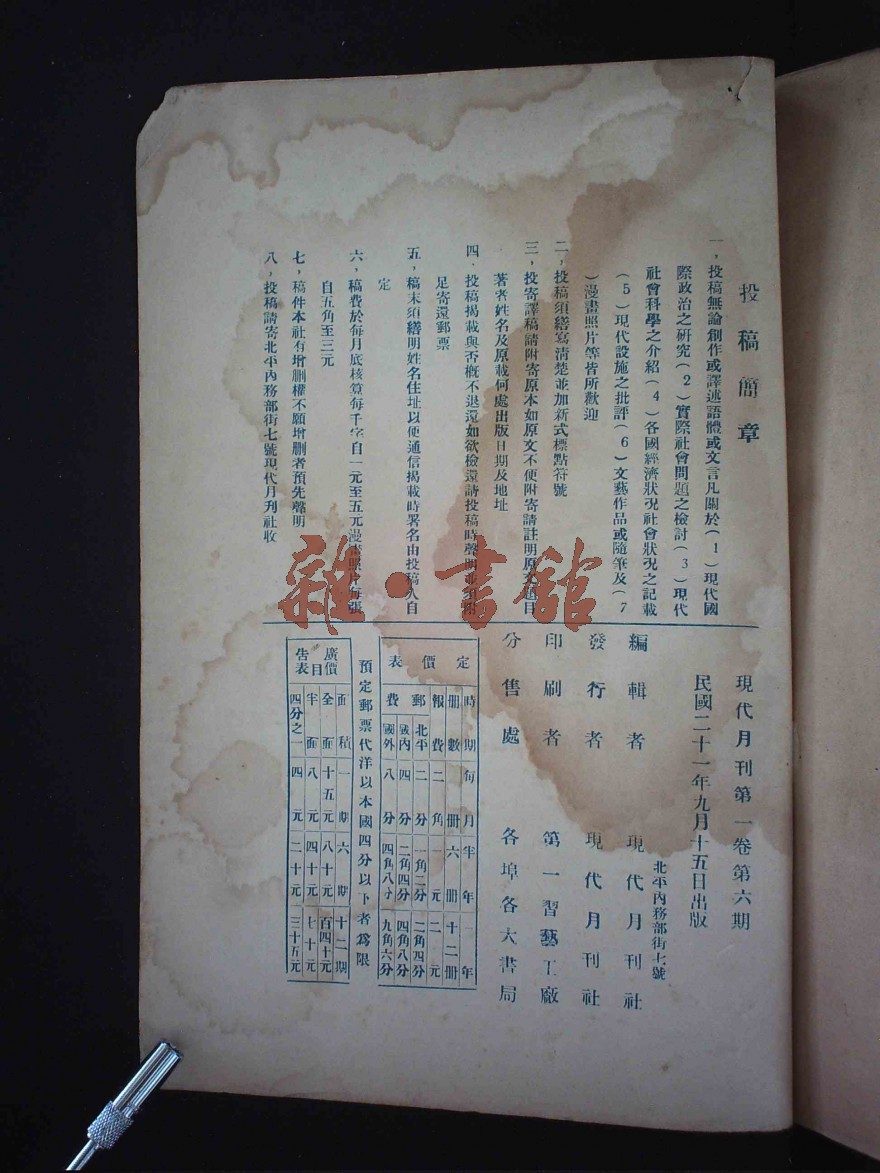 投稿簡章
一，投稿無論創作或譯述語體或文言凡關於（1）現代國
際政治之研究（2）實際社會問題之檢討（3）現代
社會科學之介紹（4）各國經濟狀况社會狀况之記載
（5）現代設施之批評（6）文藝作品或隨筆及（7
）漫畫照片等皆所歡迎
二，投稿須繕寫清楚並加新式標點符號
三，投寄譯稿請附寄原本如原文不便附寄請註明原文題目
著者姓名及原載何處出版日期及地址
四．投稿揭載與否概不退還如欲檢還請投稿時聲明並須附
足寄還郵票
五，稿末須繕明姓名住址以便通信揭載時署名由投稿人自
定
六，稿費於每月底核算每千字自一元至五元漫畫照片每張
自五角至三元
七，稿件本社有增刪權不願增刪者預先聲明
八，投稿請寄北平內務部街七號現代月刊社收
現代月刊第一卷第六期
民國二十一年九月十五日出版
北平內務部街七號
編輯者 現代月刊社
發行者 現代月刊社
印刷者 第一習藝工廠
分售處 各埠各大書局
定價表
時期 每月 半年 年
册數 册 六册 十二册
報費 二角 一元 二元
郵費 北平 二分 一角二分 二角四分
國內 四分 二角四分 四角八分
國外 八分 四角八分 九角六分
預定郵票代洋以本國四分以下者爲限
廣告價目表
面積 一期 六期 十二期
全面 十五元 八十元 百四十元
半面 八元 四十元 七十元
四分之一 四元 二十元 三十五元
雜·書館